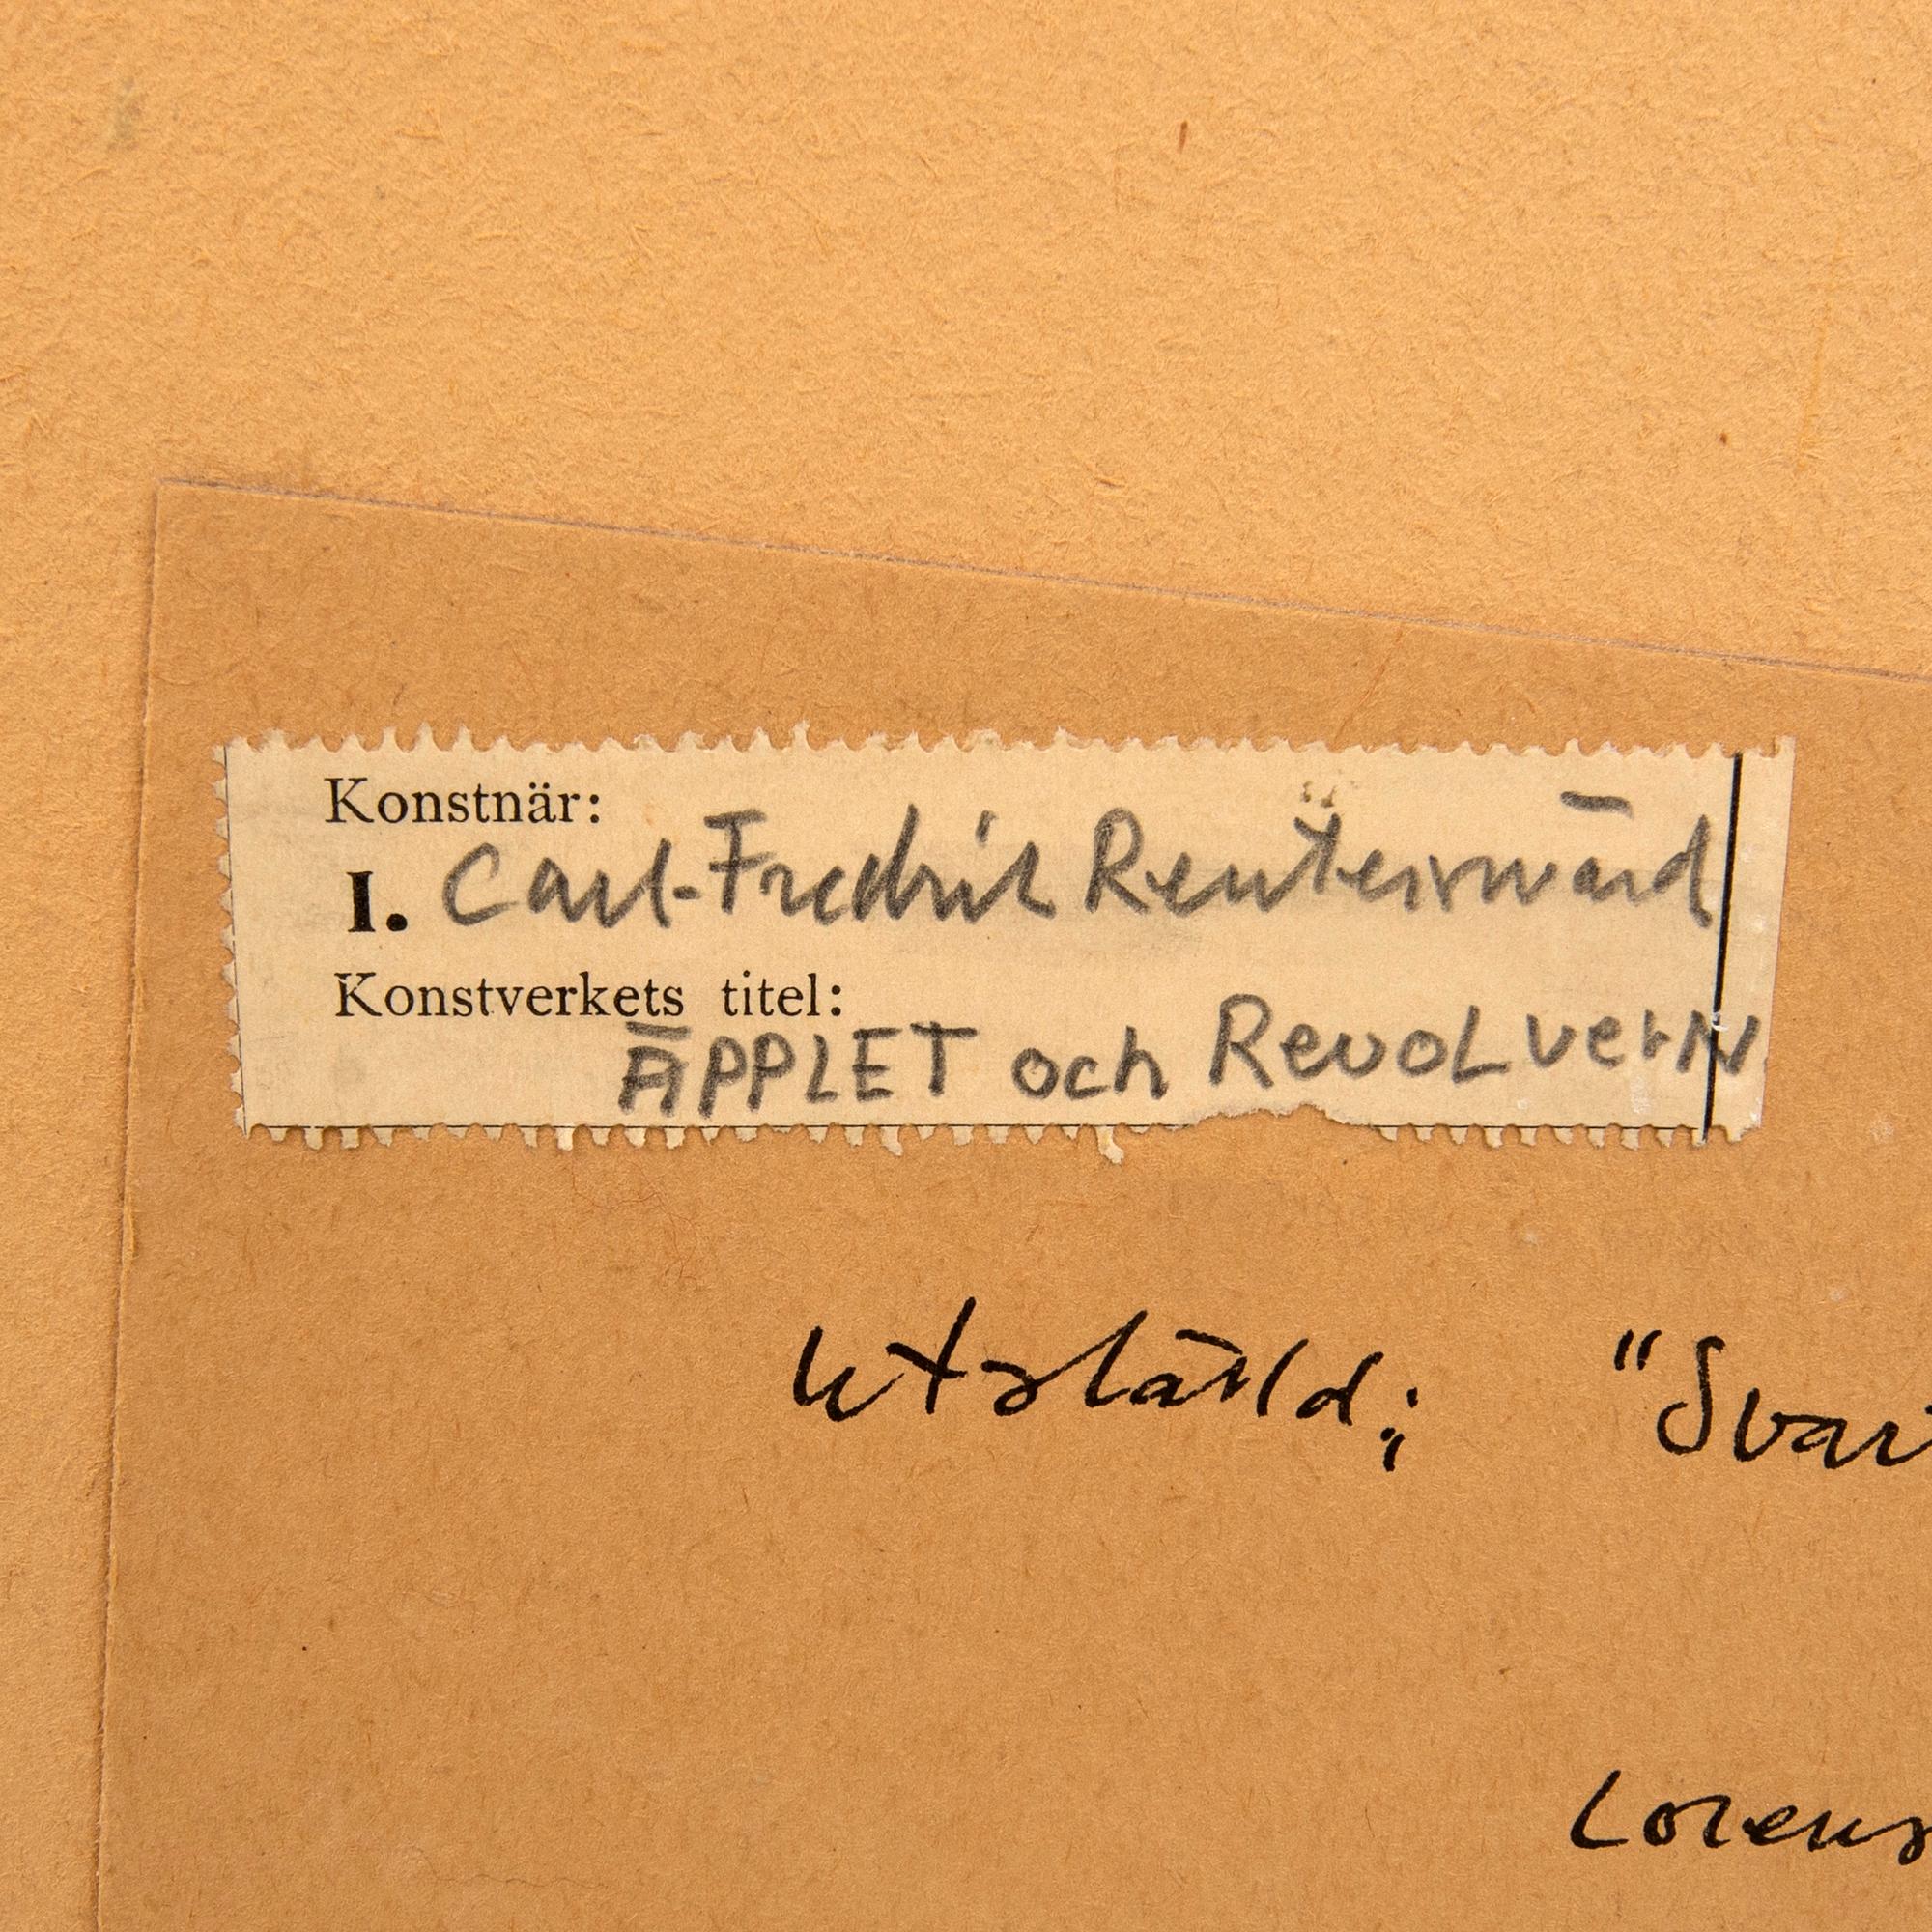 Konstnär:
I. Carl-Fredrik Reuterswärd
Konstverkets titel:
ÄPPLET och RevoLverN
utställd; "Svar
Lorens